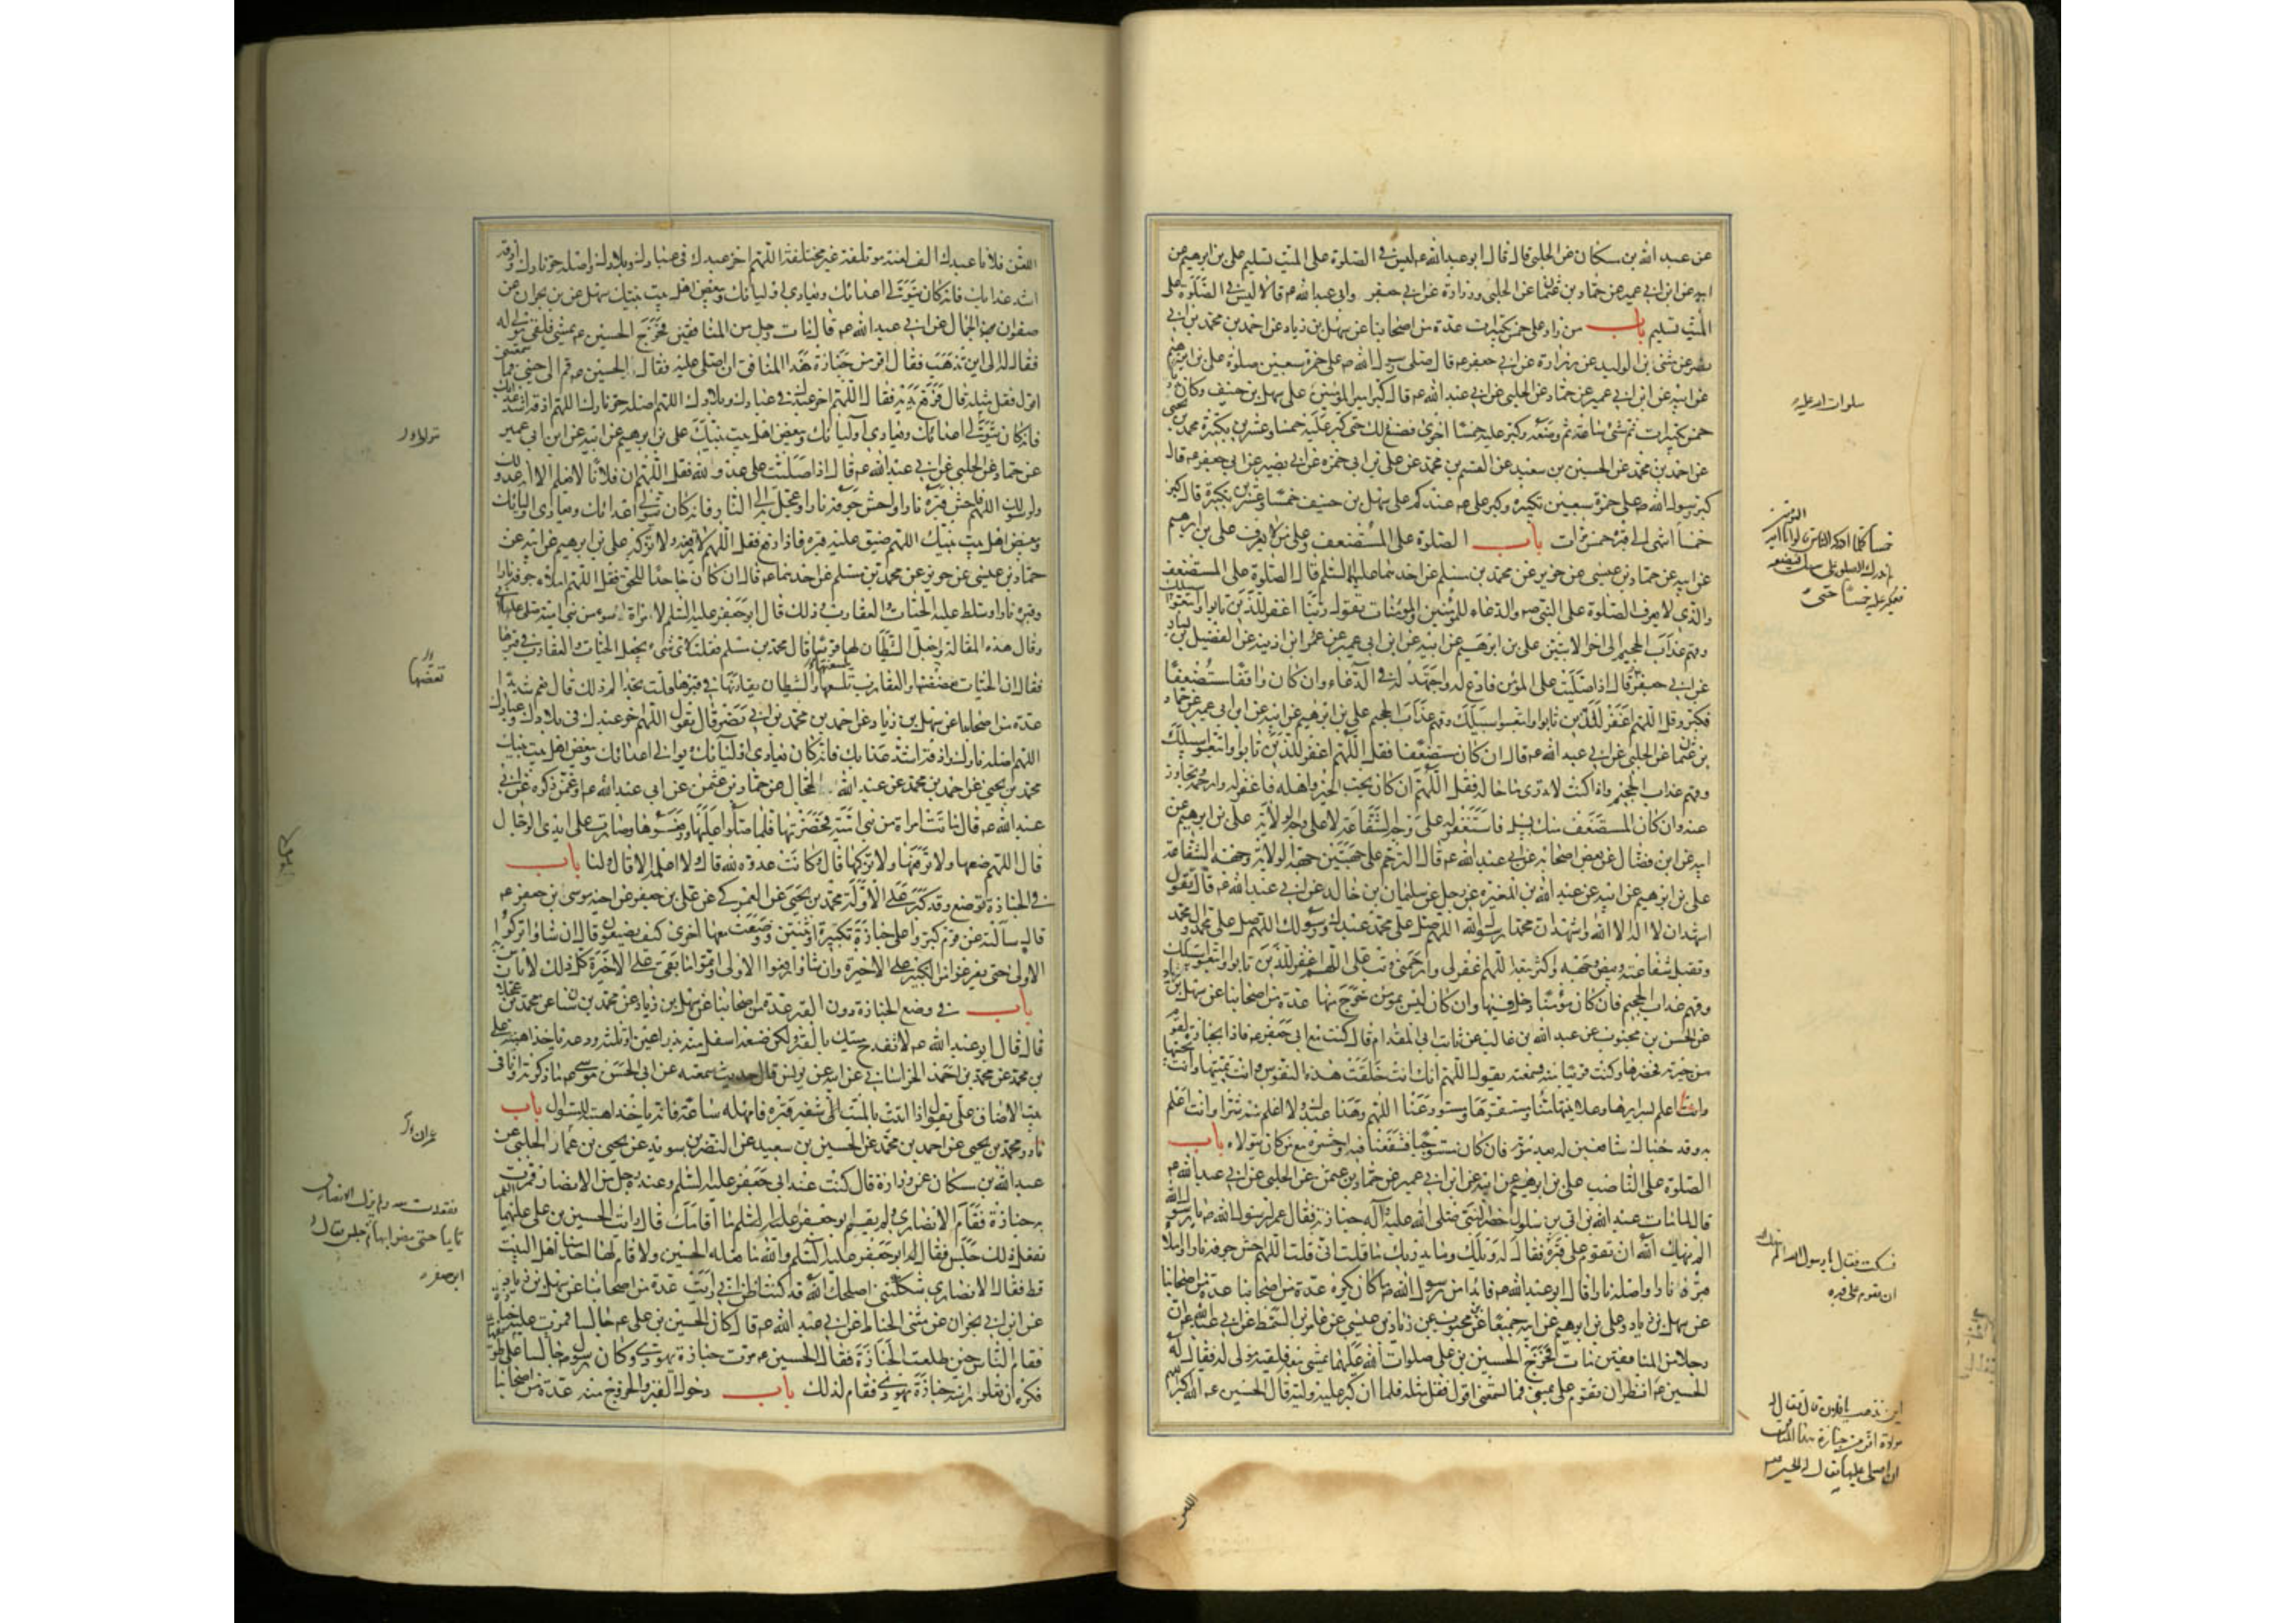 عن عبد الله بن مسكان عن الحلبى قال قال ابو عبد الله ع ليس فى الصلوة على الميت تسليم على بن ابرهيم عن
ابيه عن ابن ابى عمير عن حماد بن عثمان عن الحلبى وزرارة عن ابى جعفر وابى عبد الله ع قالا ليس فى الصلوة على
الميت تسليم باب من زاد على خمس تكبيرات عدة من اصحابنا عن سهل بن زياد عن احمد بن محمد بن ابى
نصر عن مثنى بن الوليد عن زرارة عن ابى جعفر ع قال صلى رسول الله ص على حمزة سبعين صلوة على بن ابرهيم
عن ابيه عن ابن ابى عمير عن حماد عن الحلبى عن ابى عبد الله ع قال كبر امير المؤمنين على سهل بن حنيف وكان
خمس تكبيرات ثم مشى ساعة ثم وضعه وكبر عليه خمسا اخرى فصنع ذلك حتى كبر عليه خمسا وعشرين تكبيرة محمد بن يحيى
عن احمد بن محمد عن الحسين بن سعيد عن القسم بن محمد عن على بن ابى حمزه عن ابى بصير عن ابى جعفر ع قال
كبر رسول الله ص على حمزة سبعين تكبيرة وكبر على ع عندكم على سهل بن حنيف خمسا وعشرين تكبيرة قال كبر
خمسا باب الصلوة على المستضعف وعلى من لا يعرف على بن ابرهيم
عن ابيه عن حماد بن عيسى عن حريز عن محمد بن مسلم عن احدهما عليهما السلم قال الصلوة على المستضعف
والذى لا يعرف الصلوة على النبى ص والدعاء للمؤمنين والمؤمنات يقول ربنا اغفر للذين تابوا واتبعوا سبيلك
وقهم عذاب الجحيم الى اخر الايتين على بن ابرهيم عن ابيه عن ابن ابى عمير عن عمر ابن اذينه عن الفضيل بن يسار
عن ابى جعفر ع قال اذا صليت على المؤمن فادع له واجتهد له فى الدعاء وان كان واقفا مستضعفا
فكبر وقل اللهم اغفر للذين تابوا واتبعوا سبيلك وقهم عذاب الجحيم على بن ابرهيم عن ابيه عن ابن ابى عمير عن حماد
بن عثمان عن الحلبى عن ابى عبد الله ع قال ان كان مستضعفا فقل اللهم اغفر للذين تابوا واتبعوا سبيلك
وقهم عذاب الجحيم واذا كنت لا تدرى ما حاله فقل اللهم ان كان يحب الخير واهله فاغفر له وارحمه وتجاوز
عنه وان كان المستضعف منك بسبيل فاستغفر له على وجه الشفاعة لا على وجه الولاية على بن ابرهيم عن
ابيه عن ابن فضال عن بعض اصحابه عن ابى عبد الله ع قال الترحم على جهتين جهة الولاية وجهة الشفاعة
على بن ابرهيم عن ابيه عن عبد الله بن المغيره عن رجل عن سليمان بن خالد عن ابى عبد الله ع قال تقول
اشهد ان لا اله الا الله واشهد ان محمدا رسول الله اللهم صل على محمد عبدك ورسولك اللهم صل على محمد وآل محمد
وتقبل شفاعته وبيض وجهه واكثر تبعه اللهم اغفر لى وارحمنى وتب على اللهم اغفر للذين تابوا واتبعوا سبيلك
وقهم عذاب الجحيم فان كان مؤمنا دخل فيها وان كان ليس بمؤمن خرج منها عدة من اصحابنا عن سهل بن زياد
عن الحسن بن محبوب عن عبد الله بن غالب عن ثابت ابى المقدام قال كنت مع ابى جعفر ع فاذا بجنازة لقوم
من جيرته فحضرها وكنت قريبا منه فسمعته يقول اللهم انك انت خلقت هذه النفوس وانت تميتها وانت تحييها
وانت اعلم بسرايرها وعلانيتها منا ومستقرها ومستودعها اللهم وهذا عبدك ولا اعلم منه شرا وانت اعلم
به وقد جئناك شافعين له بعد موته فان كان مستوجبا فشفعنا فيه واحشره مع من كان يتولاه باب
الصلوة على الناصب على بن ابرهيم عن ابيه عن ابن ابى عمير عن حماد بن عثمن عن الحلبى عن ابى عبد الله ع
قال لما مات عبد الله بن ابى بن سلول حضر النبى صلى الله عليه وآله جنازته فقال عمر لرسول الله ص يا رسول الله
الم ينهك الله ان تقوم على قبره فقال له ويلك وما يدريك ما قلت انى قلت اللهم احش جوفه نارا واملا
قبره نارا واصله نارا قال ابو عبد الله ع فابدا من رسول الله ما كان يكره عدة من اصحابنا
عن سهل بن زياد وعلى بن ابرهيم عن ابيه جميعا عن ابن محبوب عن زياد بن عيسى عن عامر بن السمط عن ابى عبد الله ع ان
رجلا من المنافقين مات فخرج الحسين بن على صلوات الله عليهما يمشى معه فلقيه مولى له فقال له
الحسين ع انظر ان تقوم على يمينى فما تسمعنى اقول فقل مثله فلما ان كبر عليه وليه قال الحسين ع الله اكبر
صلوات الله عليه
خمسا كلما ادركه الناس قالوا يا امير المؤمنين
لم ندرك الصلوة على سهل فيضعه
فيكبر عليه خمسا حتى
فسكت فقال يا رسول الله الم ينهك
ان تقوم على قبره
اين تذهب يا فلان قال فقال له
مولاه افر من جنازة هذا المنافق
ان اصلى عليها فقال له الحسين
اللعن
العن فلانا عبدك الف لعنة مؤتلفة غير مختلفة اللهم اخز عبدك فى عبادك وبلادك واصله حر نارك واذقه
اشد عذابك فانه كان يتولى اعدائك ويعادى اوليائك ويبغض اهل بيت نبيك سهل عن بن نجران عن
صفوان الجمال عن ابى عبد الله ع قال مات رجل من المنافقين فخرج الحسين ع يمشى فلقى مولى له
فقال له الى اين تذهب فقال افر من جنازة هذا المنافق ان اصلى عليه فقال الحسين ع قم الى جنبى فما سمعتنى
اقول فقل مثله قال فرفع يديه فقال اللهم اخز عبدك فى عبادك وبلادك اللهم اصله حر نارك اللهم اذقه اشد عذابك
فانه كان يتولى اعدائك ويعادى اوليائك ويبغض اهل بيت نبيك على بن ابرهيم عن ابيه عن ابن ابى عمير
عن حماد عن الحلبى عن ابى عبد الله ع قال اذا صليت على عدو لله فقل اللهم ان فلانا لا نعلم الا انه عدو لك
ولرسولك اللهم فاحش قبره نارا واحش جوفه نارا وعجل به الى النار فانه كان يتولى اعدائك ويعادى اوليائك
ويبغض اهل بيت نبيك اللهم ضيق عليه قبره فاذا رفع فقل اللهم لا ترفعه ولا تزكه على بن ابرهيم عن ابيه عن
حماد بن عيسى عن حريز عن محمد بن مسلم عن احدهما ع قال ان كان جاحدا للحق فقل اللهم املاء جوفه نارا
وقبره نارا وسلط عليه الحيات والعقارب وذلك قال ابو جعفر عليه السلم لامراة سوء من بنى امية صلى عليها ابى
وقال هذه المقالة واجعل الشيطان لها قرينا قال محمد بن مسلم فقلت لاى شىء يجعل الحيات والعقارب فى قبرها
فقال ان الحيات يعضضنها والعقارب تلسعها والشيطان يقارنها فى قبرها قلت تجد الم ذلك قال نعم شديدا
عدة من اصحابنا عن سهل بن زياد عن احمد بن محمد بن ابى نصر قال تقول اللهم اخز عبدك فى بلادك وعبادك
اللهم اصله نارك واذقه اشد عذابك فانه كان يعادى اوليائك ويوالى اعدائك ويبغض اهل بيت نبيك
محمد بن يحيى عن احمد بن محمد عن عبد الله الحجال عن حماد بن عثمن عن ابى عبد الله ع او عمن ذكره عن ابى
عبد الله ع قال ماتت امراة من بنى امية فحضرتها فلما صلوا عليها ورفعوها وصارت على ايدى الرجال
قال اللهم ضعها ولا ترفعها ولا تزكها قال وكانت عدوة لله قال ولا اعلمه الا قال ولنا باب
فى الجنازة توضع وقد كبر على الاولة محمد بن يحيى عن العمركى عن على بن جعفر عن اخيه موسى بن جعفر ع
قال سالته عن قوم كبروا على جنازة تكبيرة او ثنتين ووضعت معها اخرى كيف يصنعون قال ان شاوا تركوا
الاولى حتى يفرغوا من التكبير على الاخيرة وان شاوا رفعوا الاولى واتموا ما بقى على الاخيرة كل ذلك لا باس به
باب فى وضع الجنازة دون القبر عدة من اصحابنا عن سهل بن زياد عن محمد بن سنان عن محمد بن عجلان
قال قال ابو عبد الله ع لا تفدح ميتك بالقبر ولكن ضعه اسفل منه بذراعين او ثلثة ودعه ياخذ اهبته على
بن محمد عن محمد بن احمد الخراسانى عن ابيه عن يونس قال حديث سمعته عن ابى الحسن موسى ع ما ذكرته وانا فى
بيت الا ضاق على يقول اذا اتيت بالميت الى شفير قبره فامهله ساعة فانه ياخذ اهبته للسؤال باب
نادر محمد بن يحيى عن احمد بن محمد عن الحسين بن سعيد عن النضر بن سويد عن يحيى بن عمار الحلبى عن
عبد الله بن مسكان عن زرارة قال كنت عند ابى جعفر عليه السلم وعنده رجل من الانصار فمرت
به جنازة فقام الانصارى ولم يقم ابو جعفر عليه السلم ما اقامك قال رايت الحسين بن على عليهما
يفعل ذلك فقال له ابو جعفر عليه السلم والله ما فعله الحسين ولا قام لها احد منا اهل البيت
قط فقال الانصارى شككتنى اصلحك الله قد كنت اظن انى رايت عدة من اصحابنا عن سهل بن زياد
عن ابن ابى نجران عن مثنى الحناط عن ابى عبد الله ع قال كان الحسين بن على ع جالسا فمرت عليه جنازة
فقام الناس حين طلعت الجنازة فقال الحسين ع مرت جنازة يهودى وكان رسول الله ص جالسا على طريقها
فكره ان تعلو راسه جنازة يهودى فقام لذلك باب دخول القبر والخروج منه عدة من اصحابنا
عمران
فقعدت معه ولم يزل الانصارى
قايما حتى مضوا بها ثم جلس فقال له
ابو جعفر